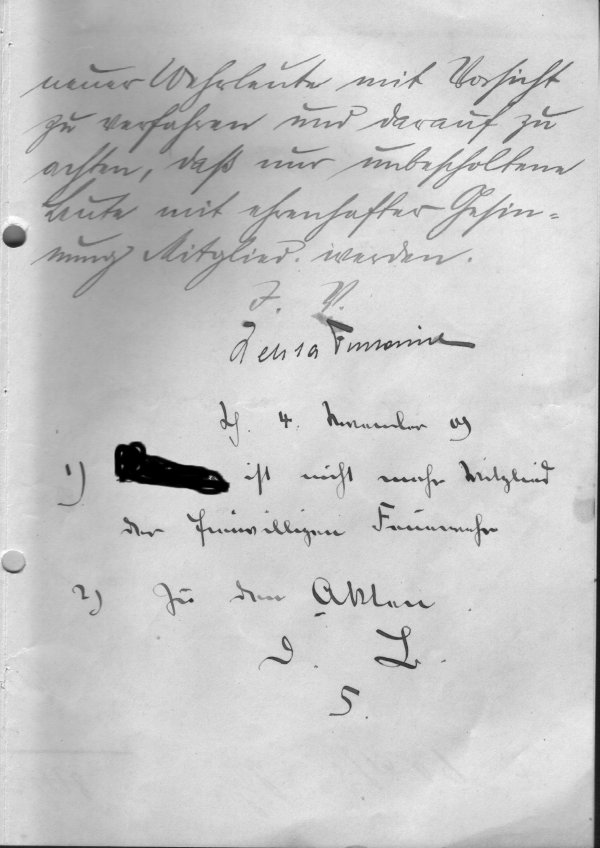 neuer Wehrleute mit Vorsicht
zu verfahren und darauf zu
achten, daß nur unbescholtene
Leute mit ehrenhafter Gesin=
nung Mitglied. werden.
J. V.
4. November 09
1) ist nicht mehr Mitglied
der freiwilligen Feuerwehr
2) Zu den Akten
D. L.
S.